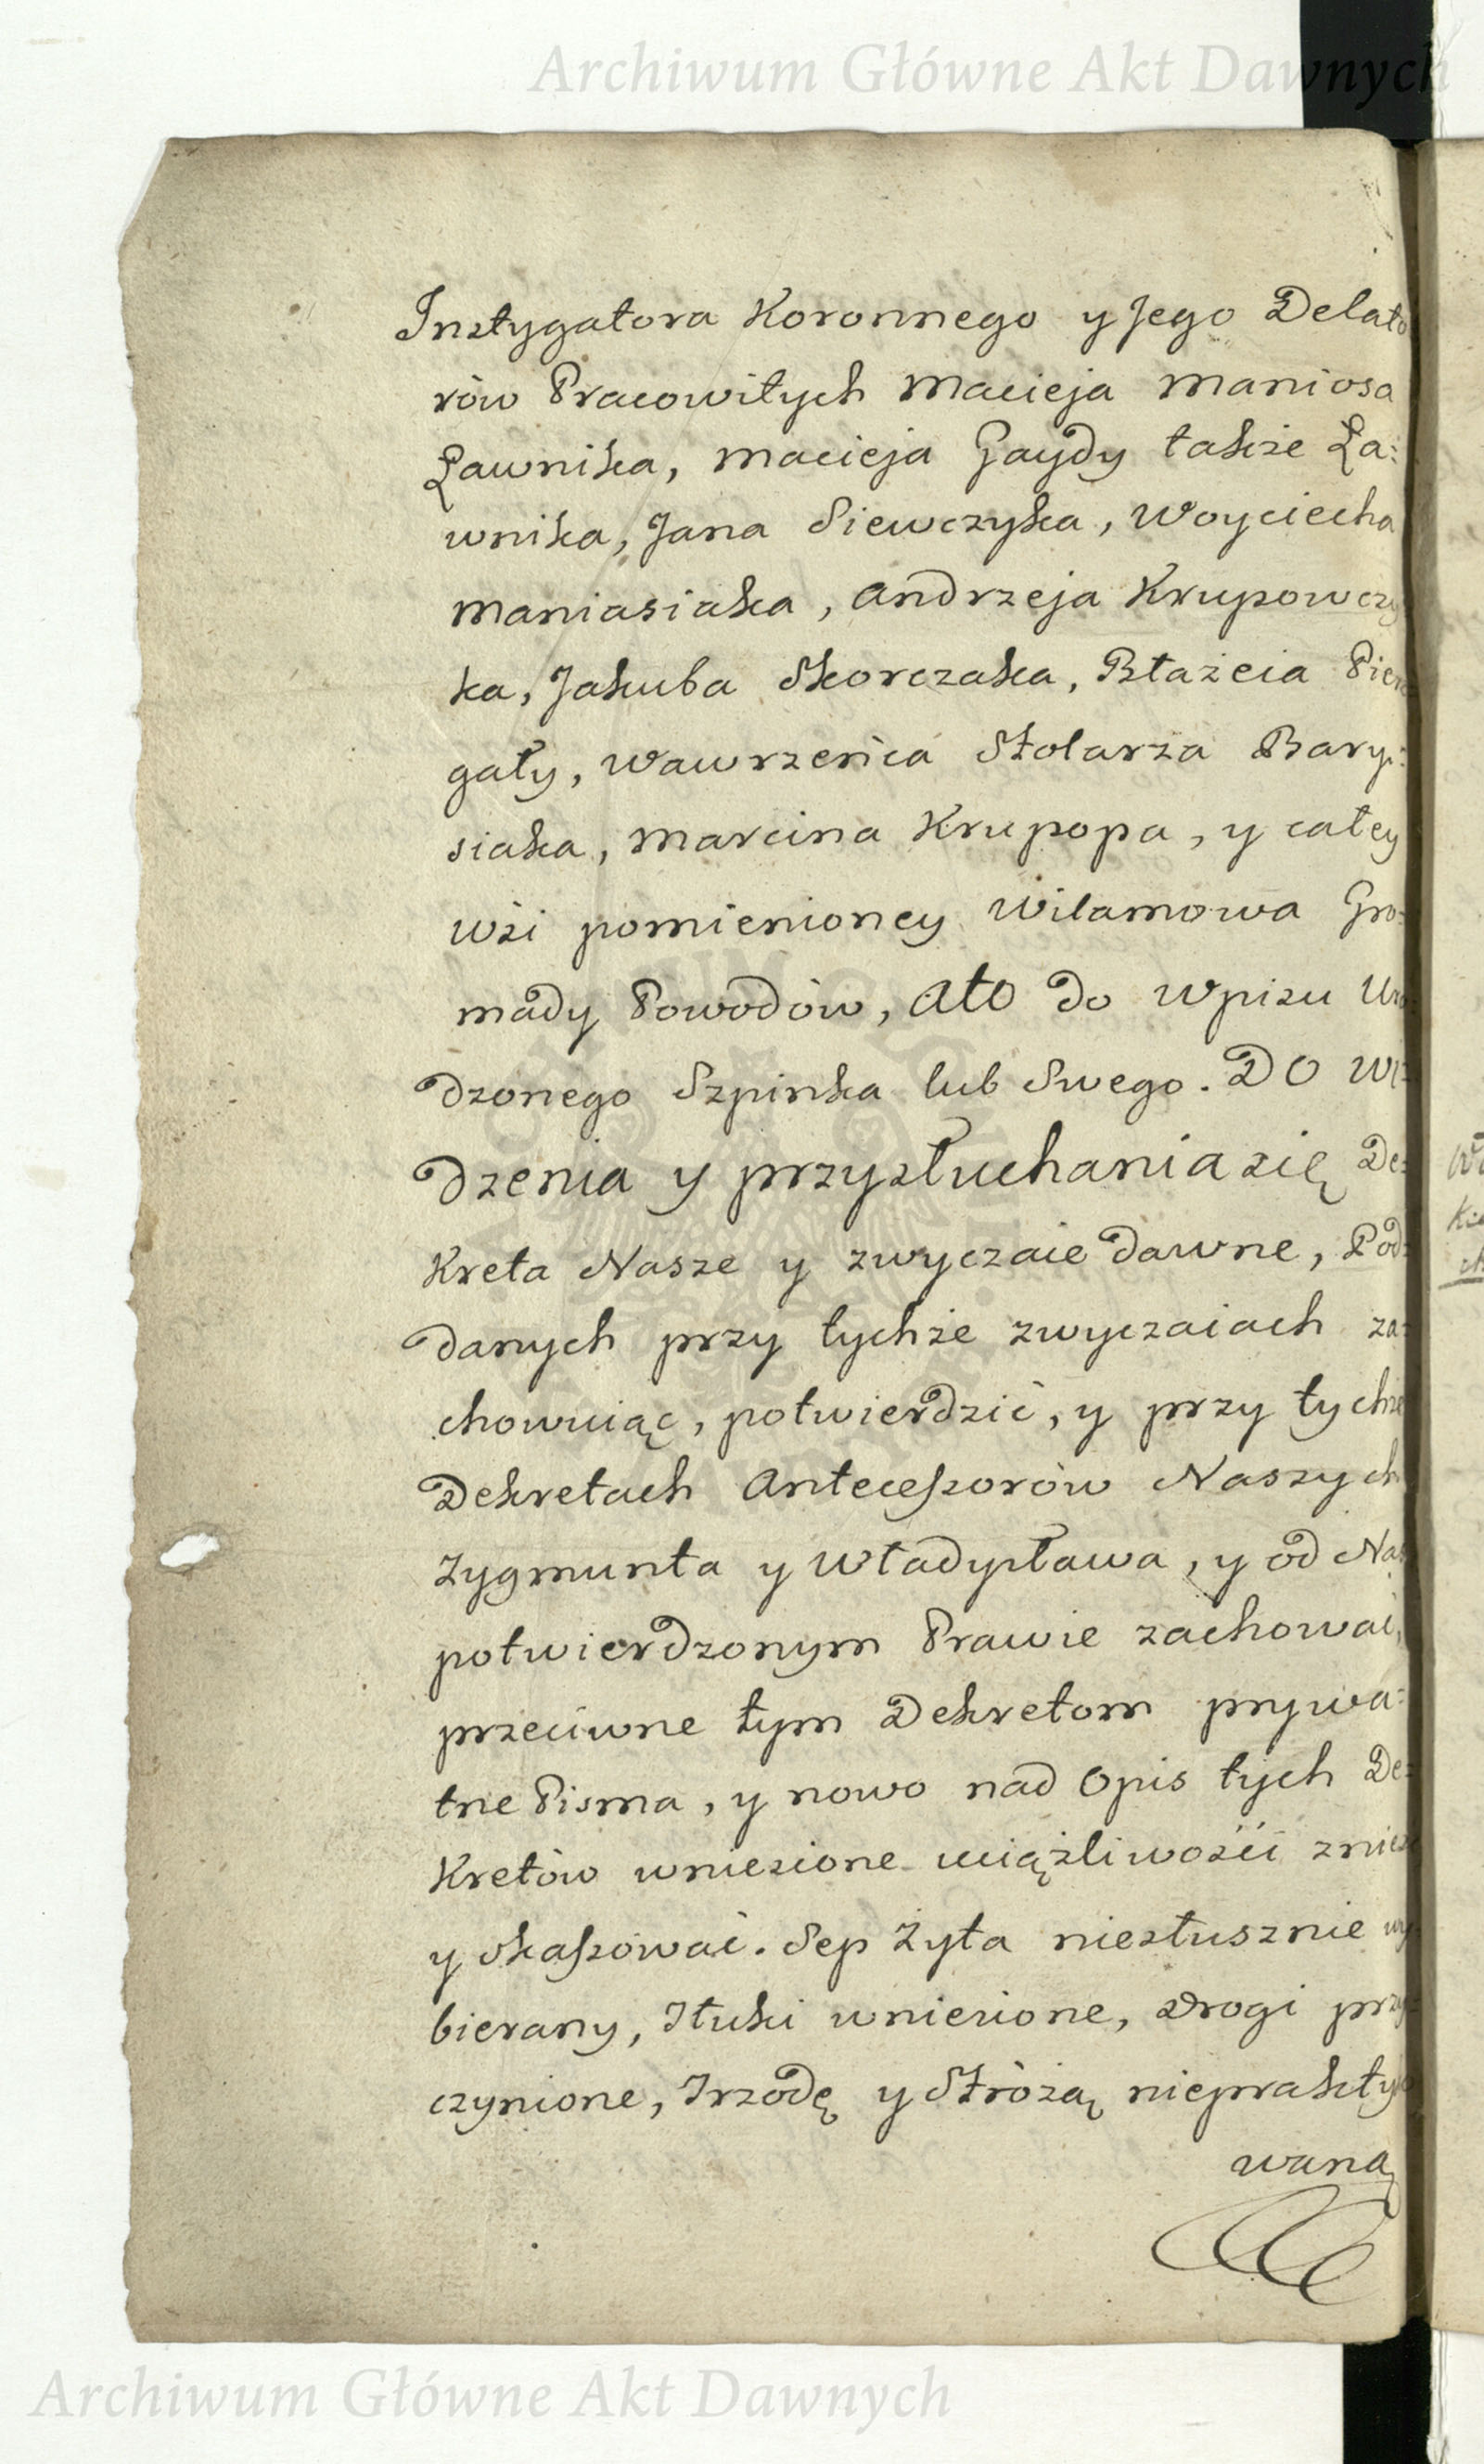 Archiwum Główne Akt Dawnych
Instygatora Koronnego y Jego Delato
rów Pracowitych Macieja Maniosa
Ławnika, Macieja Gaydy także Ła:
wnika, Jana Siewczyka, Woyciecha
Maniasiaka, Andrzeja Krupowczy
ka, Jakuba Skorczaka, Błażeia Pier
gały, Wawrzeńca Stolarza Bary:
siaka, Marcina Krupopa, y całey
wsi pomienioney Wilamowa Gro:
mady Powodów, Ato do Wpisu Uro:
dzonego Szpinka lub Swego. DO Wi:
dzenia y przysłuchania się De:
kreta Nasze y zwyczaie dawne, Pod:
danych przy tychże zwyczaiach za:
chowuiąc, potwierdzić, y przy tychże
Dekretach Antecessorów Naszych
Zygmunta y Władysława, y od Nas
potwierdzonym Prawie zachować,
przeciwne tym Dekretom prywa:
tne Pisma, y nowo nad Opis tych De:
kretów wniesione uciążliwości znieść
y skassować. Sep Żyta niesłusznie wy
bierany, Tłuki wniesione, Drogi przy:
czynione, Trzodę y Stróżą niepraktyko
waną
Archiwum Główne Akt Dawnych